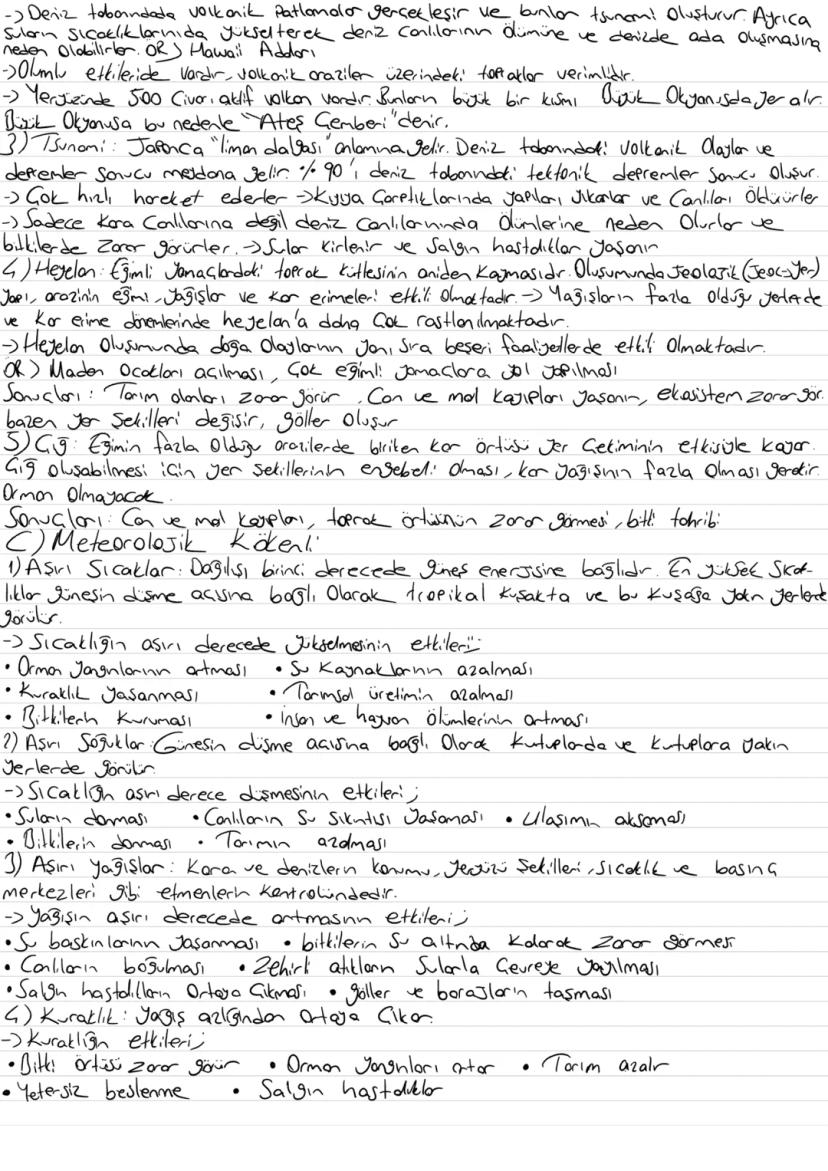 -> Deniz tabanındada volkanik Patlamalar gerçekleşir ve bunlar tsunami Oluşturur. Ayrıca
suların sıcaklıklarınıda yükselterek deniz canlılarının ölümüne ve denizde ada oluşmasına
neden olabilirler. ÖR) Hawaii Adaları
-> Olumlu etkileride vardır, volkanik araziler üzerindeki topraklar verimlidir.
-> Yeryüzünde 500 Civarı aktif volkan vardır. Bunların büyük bir kısmı Büyük Okyanusda yer alır.
Büyük Okyanusa bu nedenle "Ateş Çemberi" denir.
3) Tsunami: Japonca "liman dalgası" anlamına gelir. Deniz tabanındaki Volkanik Olaylar ve
depremler sonucu meydana gelir. %90'ı deniz tabanındaki tektonik depremler sonucu oluşur.
-> Çok hızlı hareket ederler -> Kıyıya Çarptıklarında yapıları yıkarlar ve Canlıları Öldürürler
-> Sadece kara Canlılarına değil deniz canlılarınında Ölümlerine neden Olurlar ve
bitkilerde zarar görürler. -> Sular kirlenir ve Salgın hastalıklar yaşanır
4) Heyelan: Eğimli Yamaçlardaki toprak kütlesinin aniden kaymasıdır. Oluşumunda Jeolojik (Jeo=>yer)
yapı, arazinin eğimi, yağışlar ve kar erimeleri etkili olmaktadır. -> Yağışların fazla olduğu yerlerde
ve kar erime dönemlerinde heyelan'a daha Çok rastlanılmaktadır.
-> Heyelan Oluşumunda doğa Olaylarının yanı sıra beşeri faaliyetlerde etkili Olmaktadır.
ÖR) Maden Ocakları açılması, Çok eğimli yamaçlara yol yapılması
Sonuçları: Tarım alanları zarar görür, Can ve mal kayıpları yaşanır, ekosistem zarar gör.
bazen yer şekilleri değişir, göller oluşur
5) Çığ: Eğimin fazla Olduğu arazilerde biriken kar örtüsü yer Çekiminin etkisiyle kayar.
Çığ oluşabilmesi için yer şekillerinin engebeli olması, kar yağışının fazla olması gerekir.
Orman Olmayacak.
Sonuçları: Can ve mal kayıpları, toprak örtüsünün zarar görmesi, bitki tahribi
C) Meteorolojik Kökenli
1) Aşırı Sıcaklar: Dağılışı birinci derecede güneş enerjisine bağlıdır. En yüksek Sıcak-
lıklar güneşin düşme açısına bağlı Olarak tropikal kuşakta ve bu kuşağa yakın yerlerde
görülür.
-> Sıcaklığın aşırı derecede yükselmesinin etkileri;
• Orman yangınlarının artması • Su Kaynaklarının azalması
• Kuraklık yaşanması • Tarımsal üretimin azalması
• Bitkilerin Kuruması • İnsan ve hayvan ölümlerinin artması
2) Aşırı Soğuklar: Güneşin düşme açısına bağlı Olarak kutuplarda ve kutuplara yakın
yerlerde görülür.
-> Sıcaklığın aşırı derece düşmesinin etkileri;
• Suların donması • Canlıların Su Sıkıntısı Yaşaması • Ulaşımın aksaması
• Bitkilerin donması • Tarımın azalması
3) Aşırı yağışlar: Kara ve denizlerin konumu, yeryüzü şekilleri, sıcaklık ve basınç
merkezleri gibi etmenlerin kontrolündedir.
-> Yağışın aşırı derecede artmasının etkileri;
• Su baskınlarının yaşanması • bitkilerin Su altında kalarak zarar görmesi
• Canlıların boğulması • Zehirli atıkların Sularla Çevreye yayılması
• Salgın hastalıkların Ortaya Çıkması • göller ve barajların taşması
4) Kuraklık: yağış azlığından ortaya Çıkar.
-> Kuraklığın etkileri;
• Bitki örtüsü zarar görür • Orman yangınları artar • Tarım azalır
• Yetersiz beslenme • Salgın hastalıklar